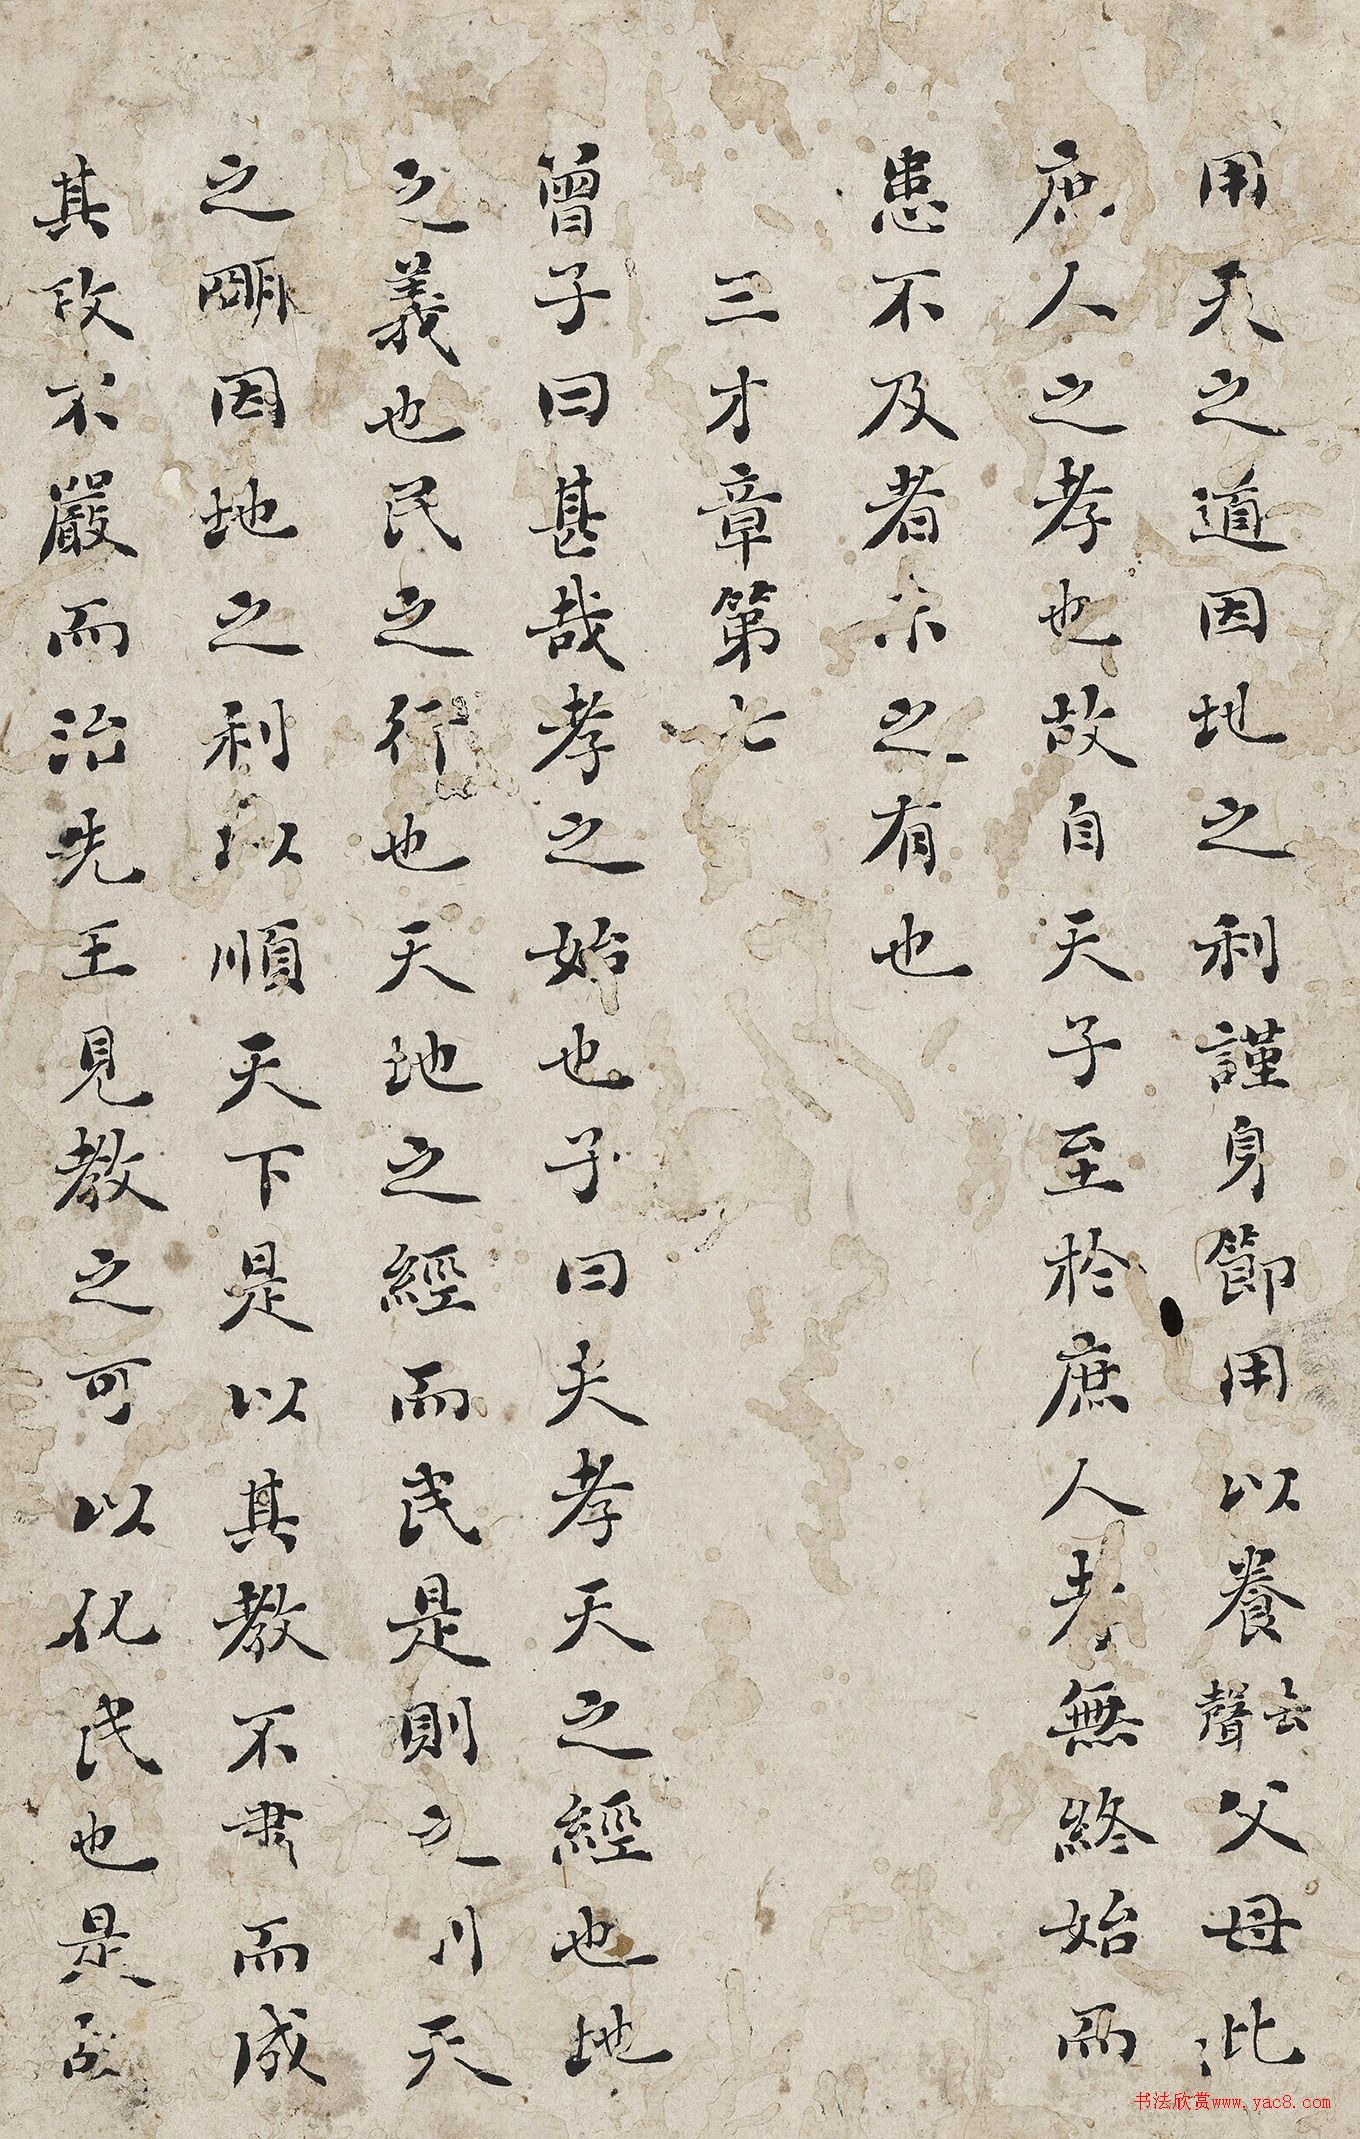 用天之道因地之利謹身節用以養去聲父母此
庶人之孝也故自天子至於庶人孝無終始而
患不及者未之有也
三才章第七
曾子曰甚哉孝之始也子曰夫孝天之經也地
之義也民之行也天地之經而民是則之則天
之明因地之利以順天下是以其教不肅而成
其政不嚴而治先王見教之可以化民也是故
书法欣赏www.yac8.com